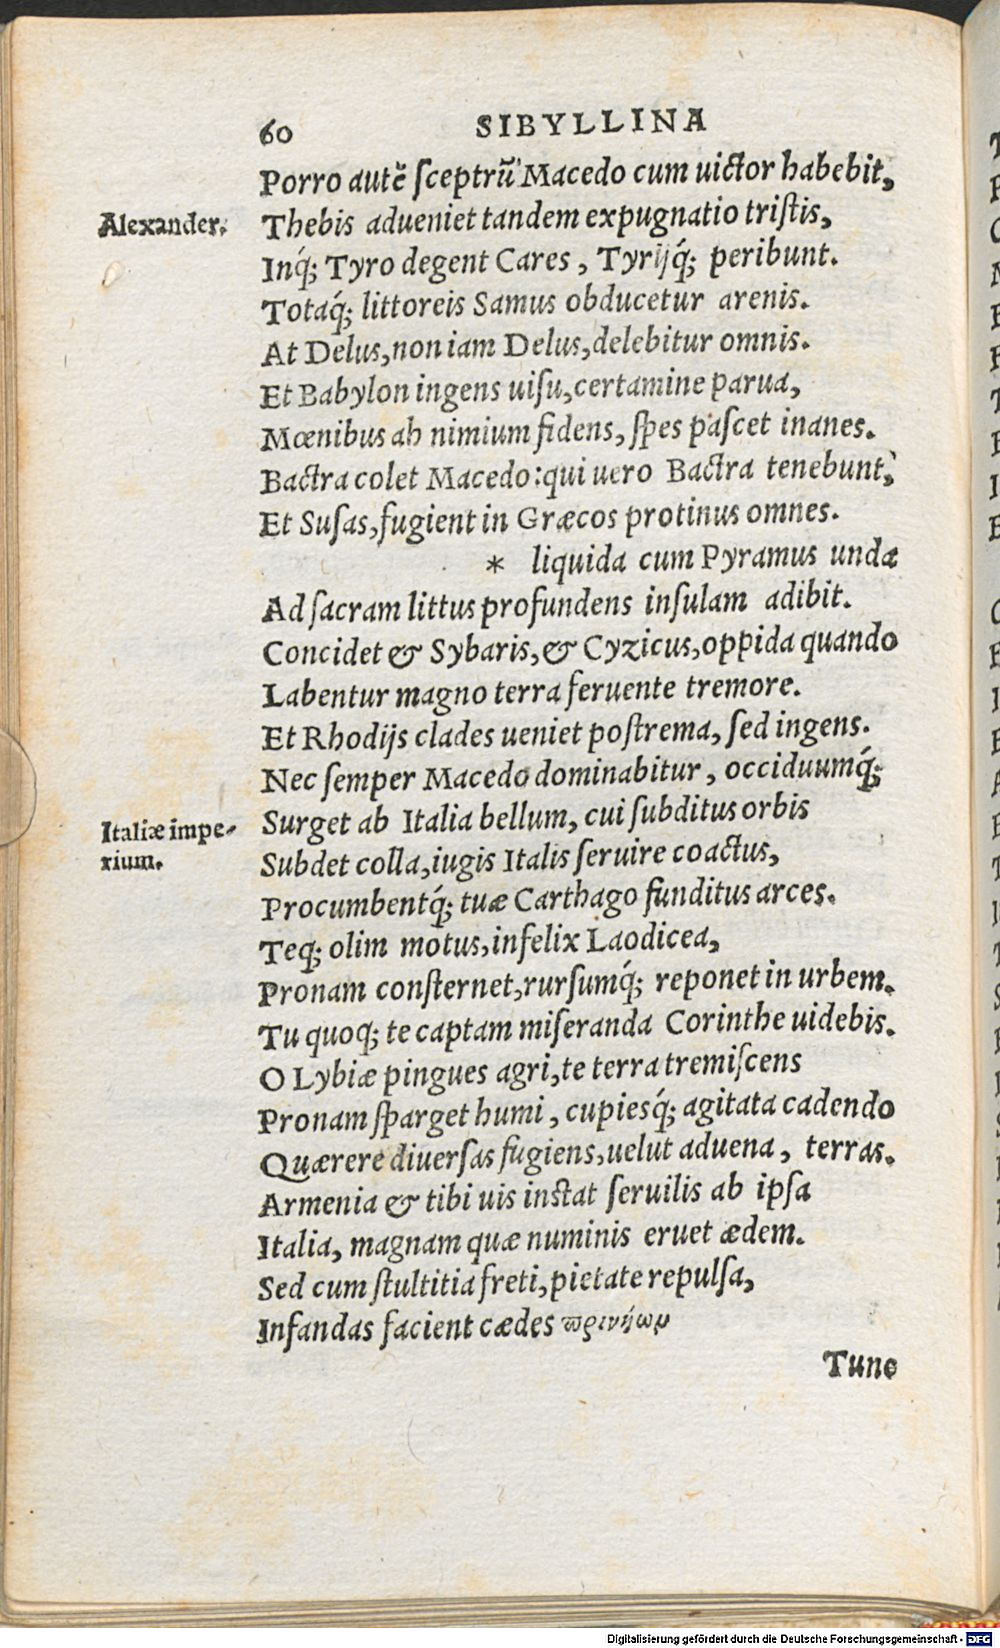 60 SIBYLLINA
Porro autē ſceptrū Macedo cum uictor habebit,
Alexander.
Thebis adueniet tandem expugnatio triſtis,
Inq́; Tyro degent Cares, Tyrijq́; peribunt.
Totaq́; littoreis Samus obducetur arenis.
At Delus, non iam Delus, delebitur omnis.
Et Babylon ingens uiſu, certamine parua,
Mœnibus ah nimium fidens, ſpes paſcet inanes.
Bactra colet Macedo: qui uero Bactra tenebunt,
Et Suſas, fugient in Græcos protinus omnes.
* liquida cum Pyramus unda
Ad ſacram littus profundens inſulam adibit.
Concidet & Sybaris, & Cyzicus, oppida quando
Labentur magno terra feruente tremore.
Et Rhodijs clades ueniet poſtrema, ſed ingens.
Nec ſemper Macedo dominabitur, occiduumq́;
Italiæ impe-
rium.
Surget ab Italia bellum, cui ſubditus orbis
Subdet colla, iugis Italis ſeruire coactus,
Procumbentq́; tuæ Carthago funditus arces.
Teq; olim motus, infelix Laodicea,
Pronam conſternet, rurſumq́; reponet in urbem.
Tu quoq; te captam miſeranda Corinthe uidebis.
O Lybiæ pingues agri, te terra tremiſcens
Pronam ſparget humi, cupiesq́; agitata cadendo
Quærere diuerſas fugiens, uelut aduena, terras.
Armenia & tibi uis inſtat ſeruilis ab ipſa
Italia, magnam quæ numinis eruet ædem.
Sed cum ſtultitia freti, pietate repulſa,
Infandas facient cædes
Tunc
Digitalisierung gefördert durch die Deutsche Forschungsgemeinschaft - DFG